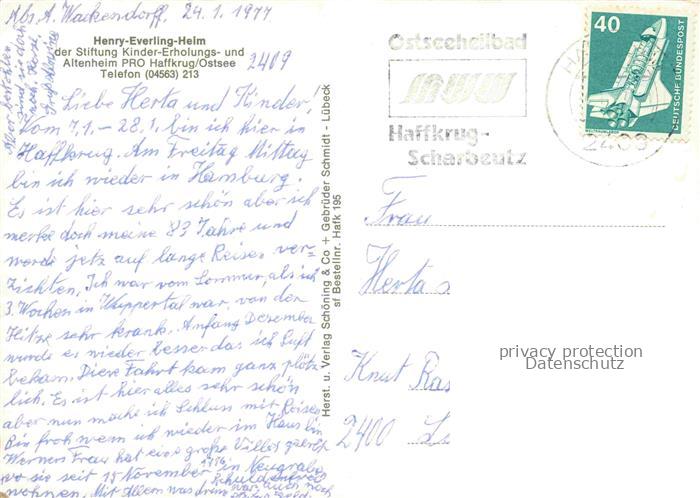 Abs. A. Wackendorff, 24.1.1977
Henry-Everling-Heim
der Stiftung Kinder-Erholungs- und
Altenheim PRO Haffkrug/Ostsee
Telefon (04563) 213
2409
Liebe Herta und Kinder!
Vom 7.1. – 28.1. bin ich hier in
Haffkrug. Am Freitag Mittag
bin ich wieder in Hamburg.
Es ist hier sehr schön aber ich
merke doch meine 83 Jahre und
werde jetz auf lange Reisen ver-
zichten. Ich war vom Sommer, als ich
3 Wochen in Wuppertal war, von der
Hitze sehr krank. Anfang Dezember
wurde es wieder besser das ich Luft
bekam. Diese Fahrt kam ganz plötz-
lich. Es ist hier alles sehr schön
aber nun mache ich Schluss mit Reisen
Bin froh wenn ich wieder im Haus bin
Werners Frau hat eine große Villa geerbt
wo sie seit 15 November 1976 in Neugraben
wohnen. Mit Allem was drum war auch noch
Schuldenfrei
Herst. u. Verlag Schöning & Co + Gebrüder Schmidt - Lübeck
sf Bestellnr. Hafk 195
Ostseeheilbad
Haffkrug-
Scharbeutz
HA
2409
40
DEUTSCHE BUNDESPOST
Frau
Herta
Knut Ras
2400
privacy protection
Datenschutz